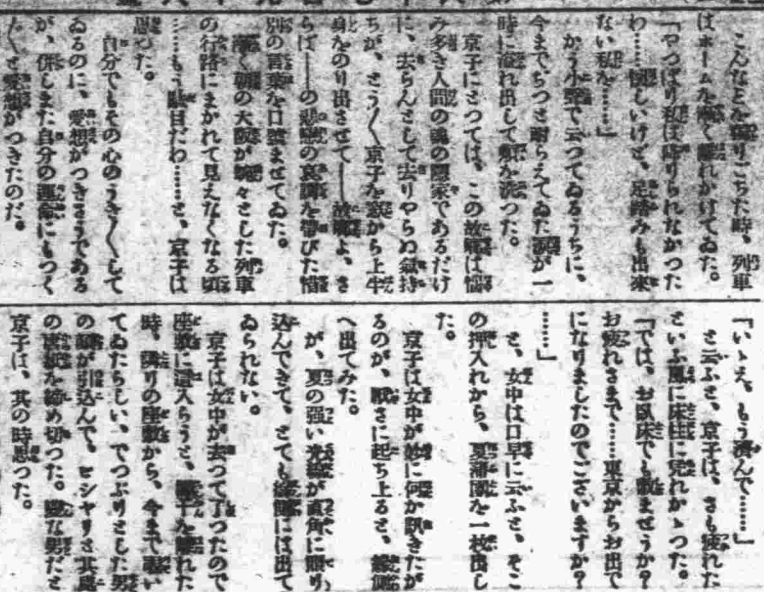 こんなとを獨りごちた時、列車
はホームを離れかけてゐた。
「やつぱり私は降りられなかつた
わ……懷しいけど、足踏みも出來
ない私を……」
かう小聲で云つてゐるうちに、
今までぢつと耐らえてゐた涙が一
時に溢れ出して頬を洗つた。
京子にとつては、この故郷は惱
み多き人間の魂の隱家であるだけ
に、去らんとして去りやらぬ氣持
ちが、とう〱京子を窓から上半
身をのり出させて――故郷よ、さ
らば――の悲戀の哀調を帶びた惜
別の言葉を口號ませてゐた。
朝の大阪が々とした列車
の行路にまかれて見えなくなる頃
……もう駄目だわ……と、京子は
思つた。
自分でもその心のうき〱して
ゐるのに、愛想がつきさうである
が、併しまた自分の運命にもつく
〲と愛想がつきたのだ。
「いゝえ、もう濟んで……」
と云ふと、京子は、さも疲れた
といふ風に床柱に凭れかゝつた。
「では、お臥床でも敷ませうか？
お疲れさまで……東京からお出で
になりましたのでございますか？
……」
と、女中は口早に云ふと、そこ
の押入れから、夏蒲團を一枚出し
た。
京子は女中が妙に何か訊きたが
るのが、厭さに起ち上ると、縁側
へ出てみた。
が、夏の強い光線が直角に照り
込んできて、とても縁側には出て
ゐられない。
京子は女中が去つて了つたので
座敷に這入らうと、障子を離れた
時、隣りの座敷から、今まで覗い
てゐたらしい、でつぷりとした男
の顏が引込んで、ピシヤリと其處
の障紙を締め切つた。變な男だと
京子は、其の時思つた。